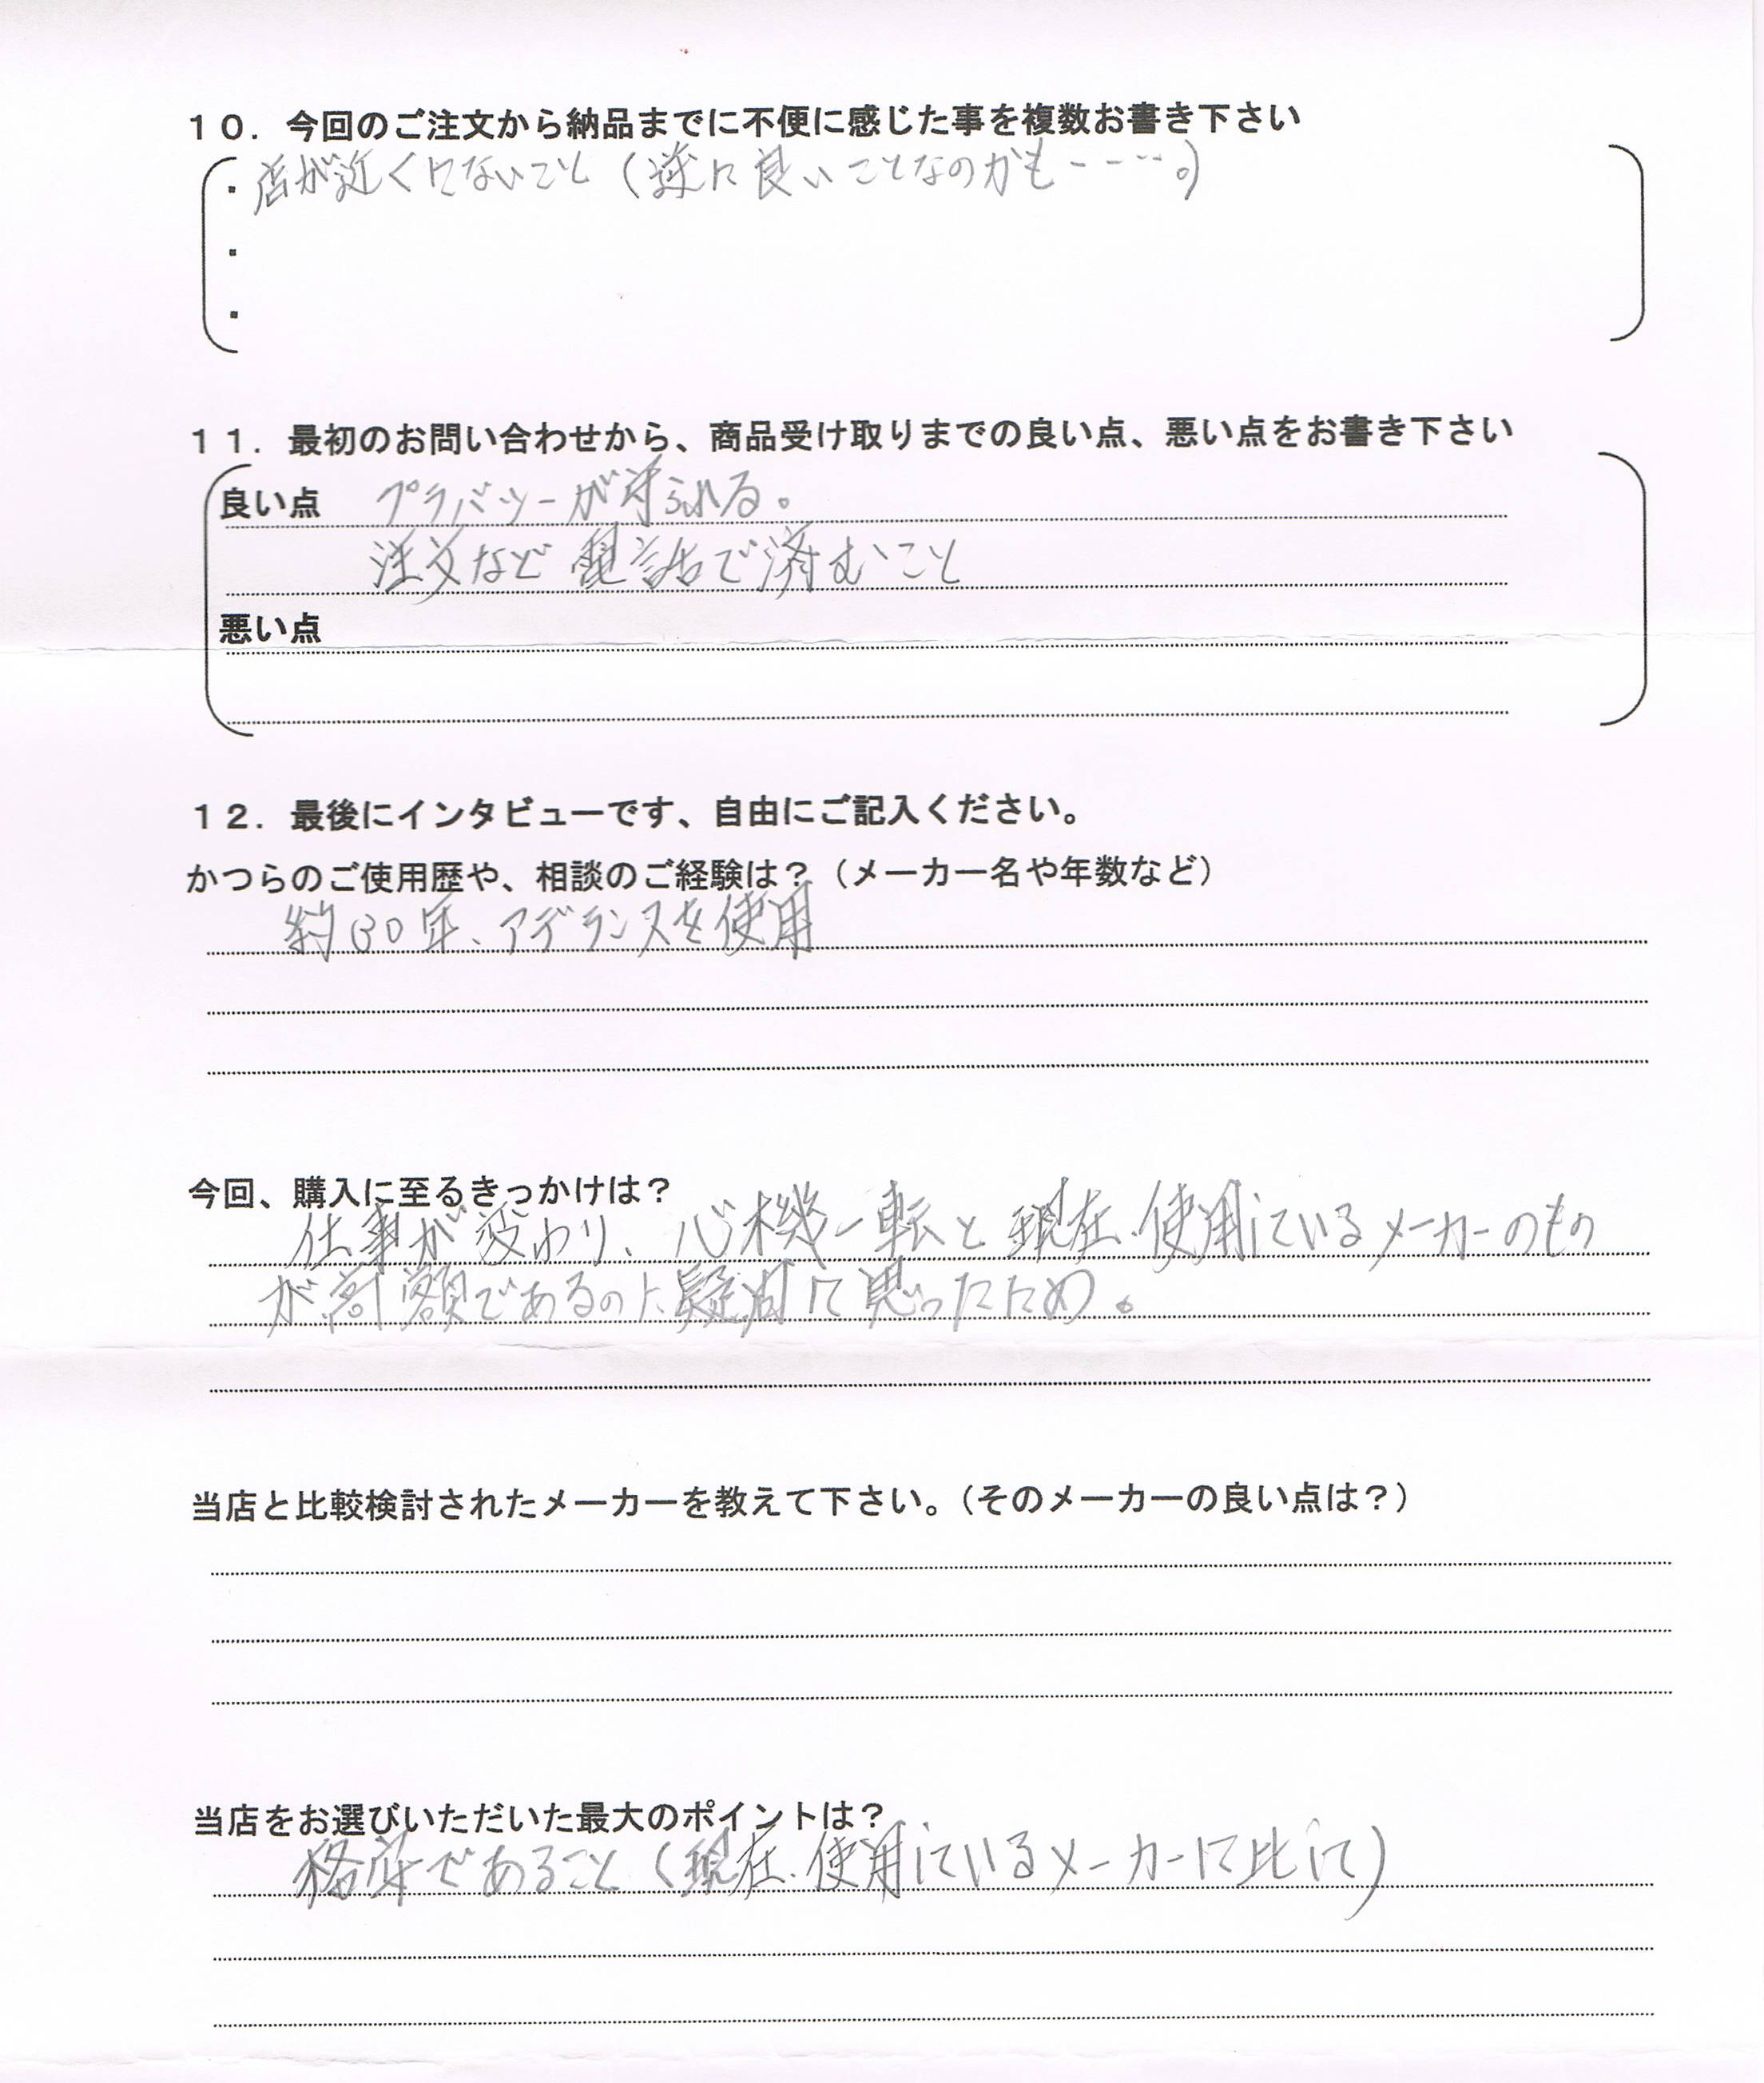 １０．今回のご注文から納品までに不便に感じた事を複数お書き下さい
・店が近くにないこと（逆に良いことなのかも－－…。）
・
・
１１．最初のお問い合わせから、商品受け取りまでの良い点、悪い点をお書き下さい
良い点　プラバシーが守られる。
注文など電話で済むこと
悪い点
１２．最後にインタビューです、自由にご記入ください。
かつらのご使用歴や、相談のご経験は？（メーカー名や年数など）
約30年、アデランスを使用
今回、購入に至るきっかけは？
仕事が変わり、心機一転と現在、使用しているメーカーのもの
が高額であるのに疑問に思ったため。
当店と比較検討されたメーカーを教えて下さい。（そのメーカーの良い点は？）
当店をお選びいただいた最大のポイントは？
格安であること（現在、使用しているメーカーに比して）